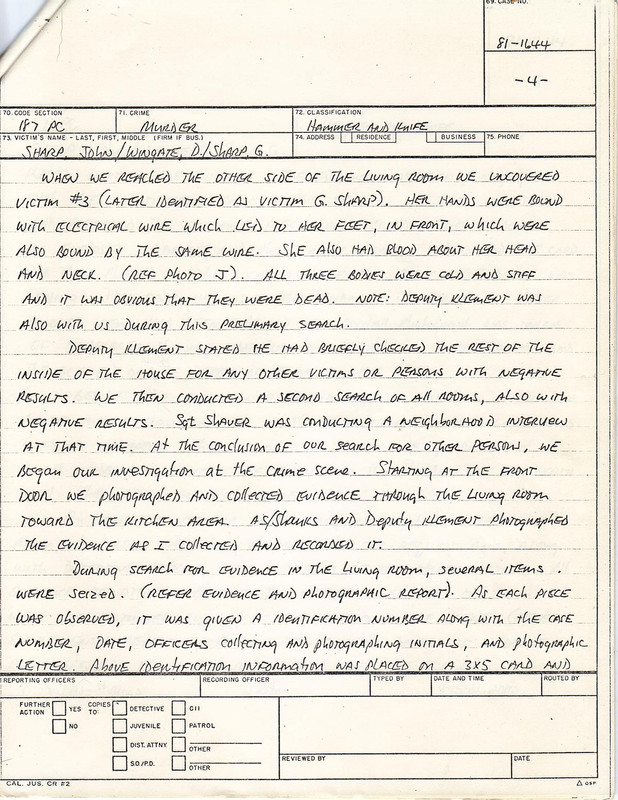 69. CASE NO.
81-1644
-4-
70. CODE SECTION
187 PC
71. CRIME
MURDER
72. CLASSIFICATION
HAMMER AND KNIFE
73. VICTIM'S NAME - LAST, FIRST, MIDDLE (FIRM IF BUS.)
SHARP, JOHN/WINGATE, D./SHARP, G.
74. ADDRESS RESIDENCE BUSINESS
75. PHONE
WHEN WE REACHED THE OTHER SIDE OF THE LIVING ROOM WE UNCOVERED
VICTIM #3 (LATER IDENTIFIED AS VICTIM G. SHARP). HER HANDS WERE BOUND
WITH ELECTRICAL WIRE WHICH LED TO HER FEET, IN FRONT, WHICH WERE
ALSO BOUND BY THE SAME WIRE. SHE ALSO HAD BLOOD ABOUT HER HEAD
AND NECK. (REF PHOTO J). ALL THREE BODIES WERE COLD AND STIFF
AND IT WAS OBVIOUS THAT THEY WERE DEAD. NOTE: DEPUTY KLEMENT WAS
ALSO WITH US DURING THIS PRELIMARY SEARCH.
DEPUTY KLEMENT STATED HE HAD BRIEFLY CHECKED THE REST OF THE
INSIDE OF THE HOUSE FOR ANY OTHER VICTIMS OR PERSONS WITH NEGATIVE
RESULTS. WE THEN CONDUCTED A SECOND SEARCH OF ALL ROOMS, ALSO WITH
NEGATIVE RESULTS. Sgt SHAVER WAS CONDUCTING A NEIGHBORHOOD INTERVIEW
AT THAT TIME. At the CONCLUSION OF OUR SEARCH FOR OTHER PERSONS, WE
BEGAN OUR INVESTIGATION AT the CRIME SCENE. STARTING AT THE FRONT
DOOR WE PHOTOGRAPHED AND COLLECTED EVIDENCE THROUGH THE LIVING ROOM
TOWARD THE KITCHEN AREA. AS/SHANKS AND DEPUTY KLEMENT PHOTOGRAPHED
THE EVIDENCE AS I COLLECTED AND RECORDED IT.
DURING SEARCH FOR EVIDENCE IN THE LIVING ROOM, SEVERAL ITEMS
WERE SEIZED. (REFER EVIDENCE AND PHOTOGRAPHIC REPORT). AS EACH PIECE
WAS OBSERVED, IT WAS GIVEN A IDENTIFICATION NUMBER ALONG WITH THE CASE
NUMBER, DATE, OFFICERS COLLECTING AND PHOTOGRAPHING INITIALS, AND PHOTOGRAPHIC
LETTER. ABOVE IDENTIFICATION INFORMATION WAS PLACED ON A 3X5 CARD AND
REPORTING OFFICERS RECORDING OFFICER TYPED BY DATE AND TIME ROUTED BY
FURTHER ACTION YES NO
COPIES TO: DETECTIVE CII
JUVENILE PATROL
DIST. ATTNY. OTHER
SO/P.D. OTHER
REVIEWED BY DATE
CAL. JUS. CR #2
△ OSP